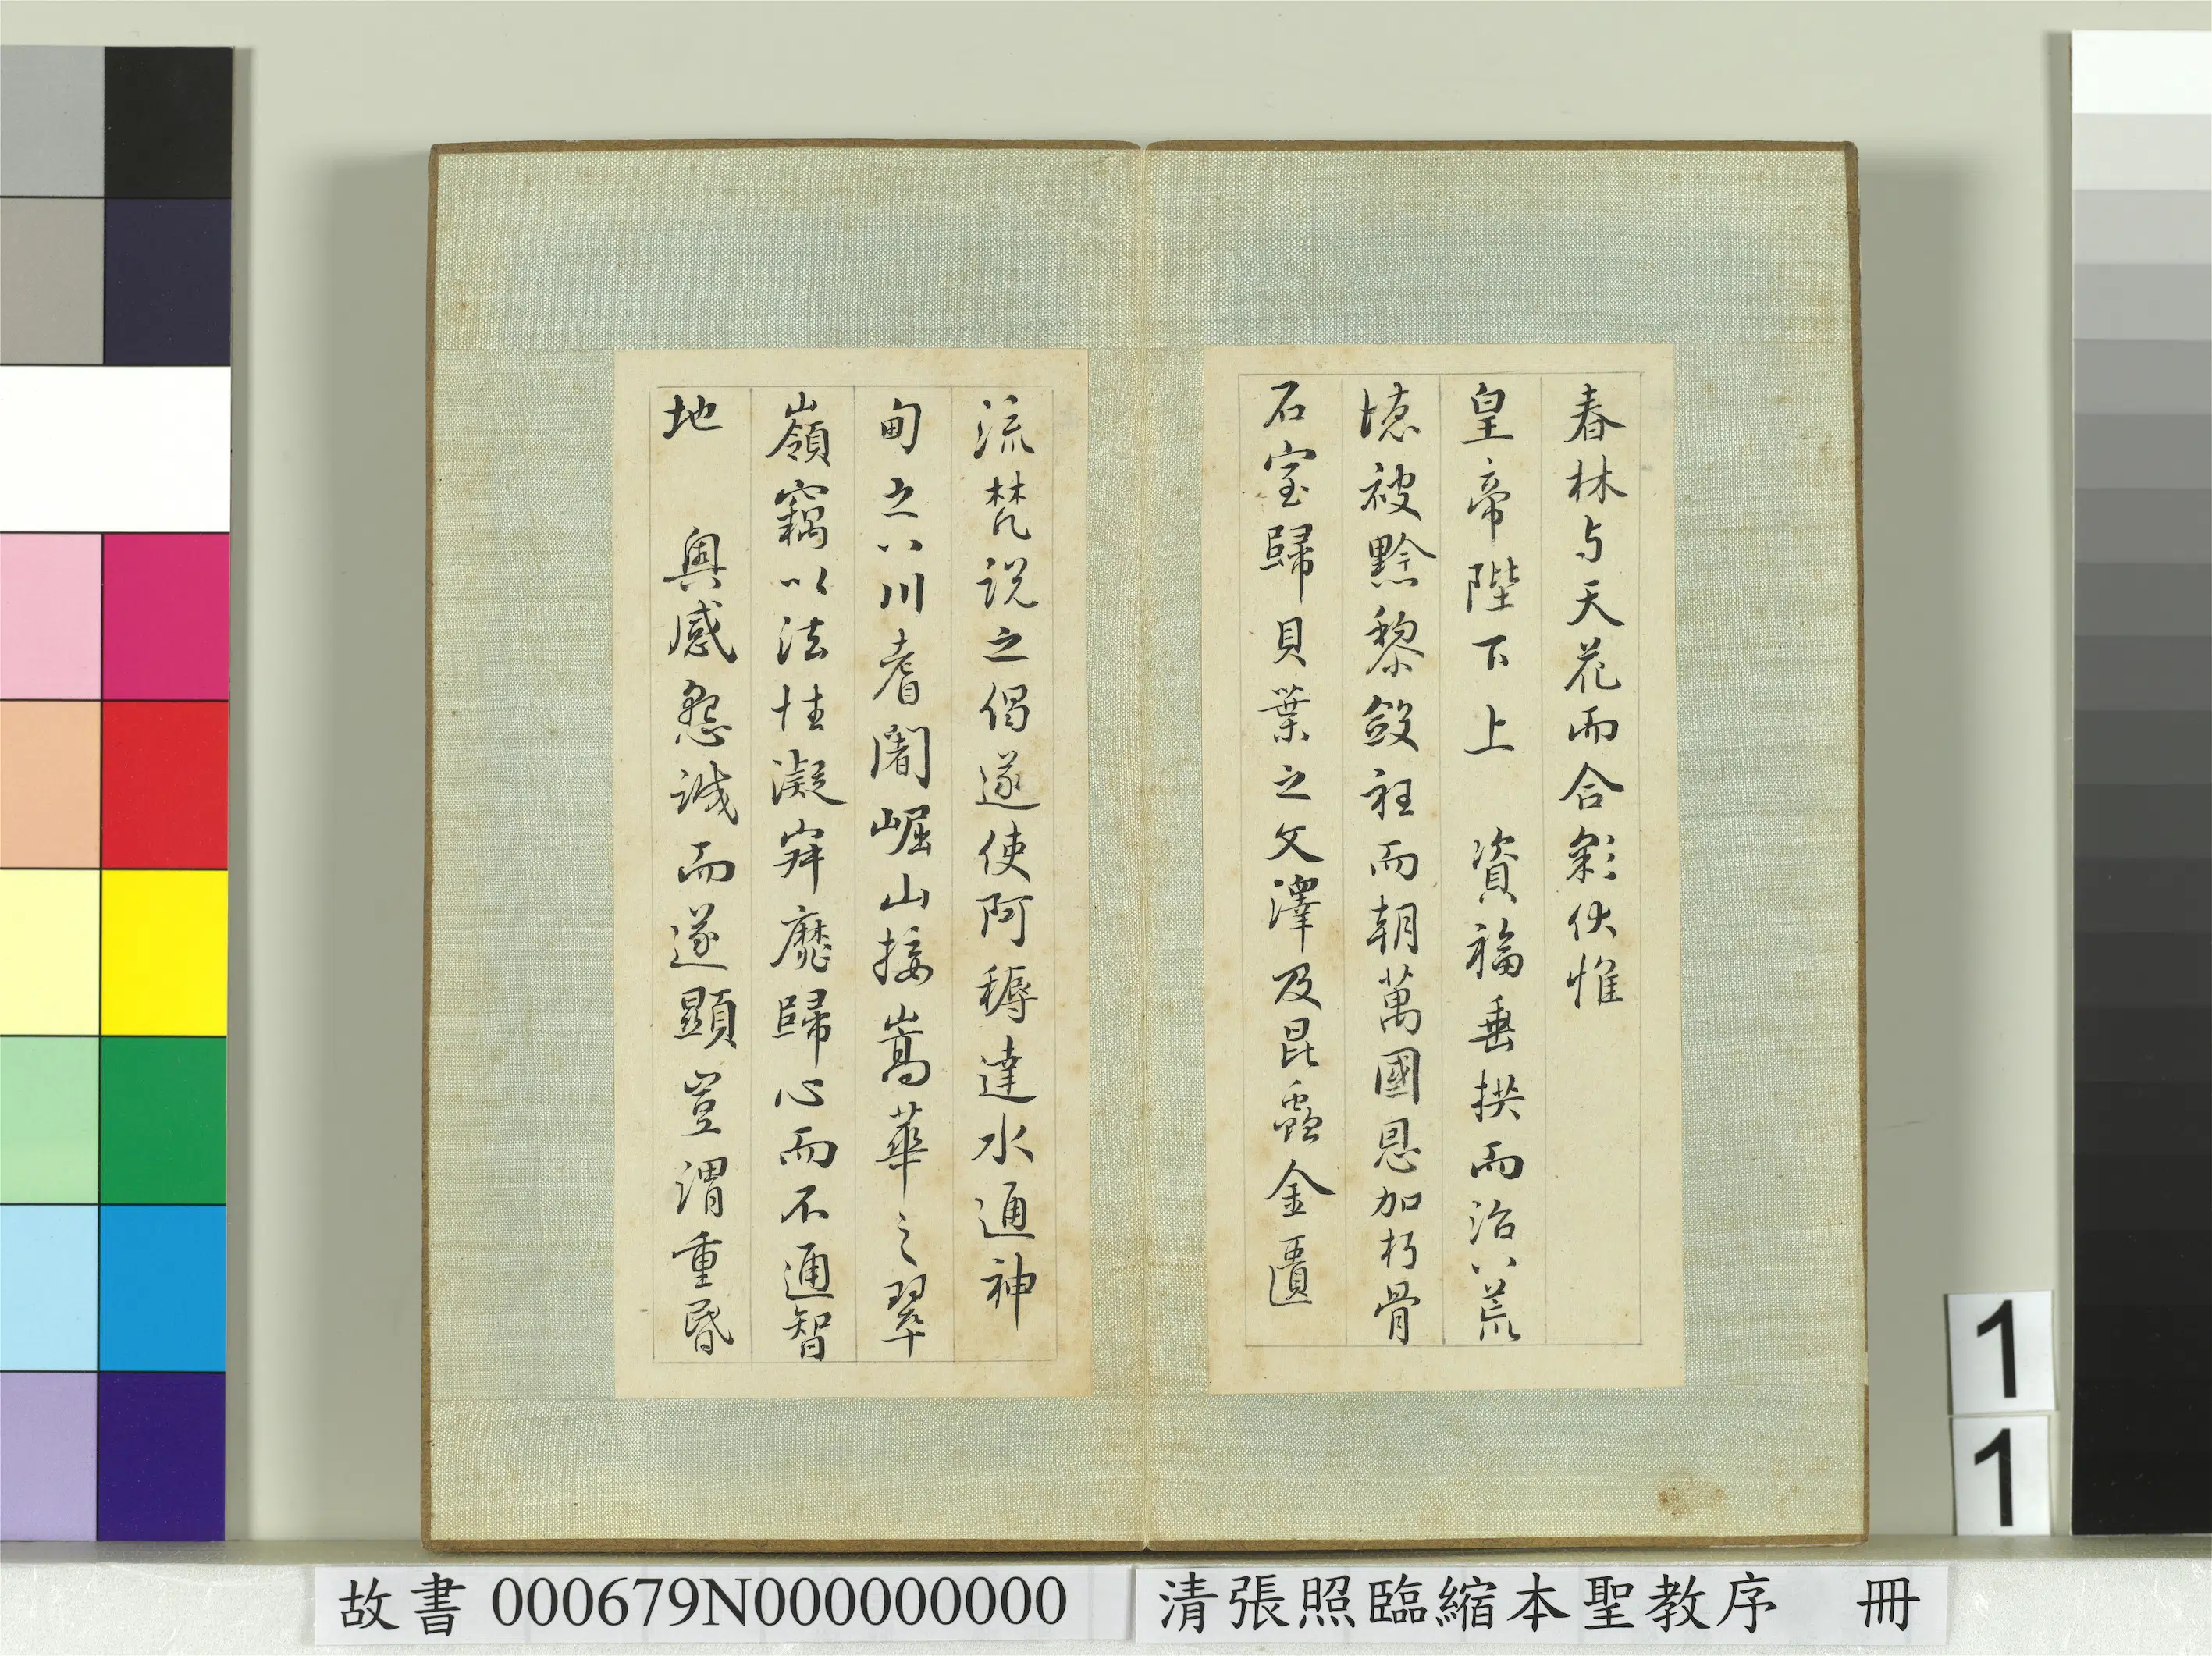 春林与天花而合彩伏惟
皇帝陛下上 資福垂拱而治八荒
德被黔黎斂衽而朝萬國恩加朽骨
石室歸貝葉之文澤及昆蟲金匱
流梵說之偈遂使阿耨達水通神
甸之八川耆闍崛山接嵩華之翠
嶺竊以法性凝寂靡歸心而不通智
地 奧感懇誠而遂顯豈謂重昏
1
1
故書 000679N000000000
清張照臨縮本聖教序 冊